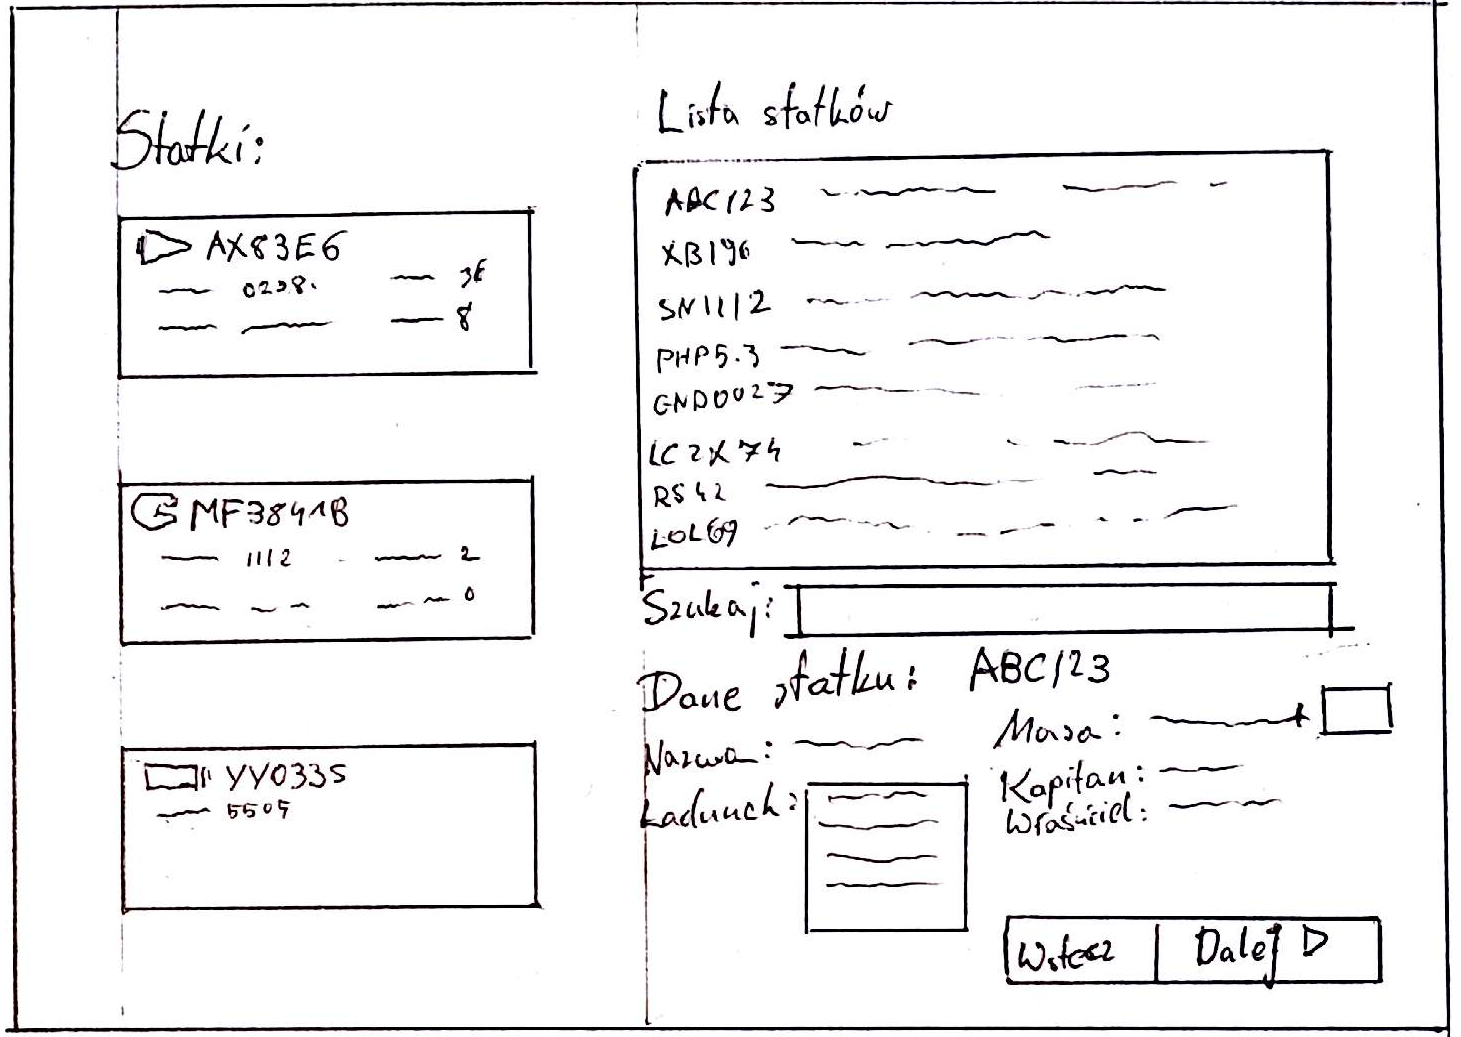 Statki:
AX83E6
0238. 3E
8
MF3841B
1112 2
0
YY0335
5505
Lista statków
ABC123
XB196
SN1112
PHP5.3
GND0027
LC2X74
RS42
LOL69
Szukaj:
Dane statku: ABC123
Nazwa:
Masa:
Ładunek:
Kapitan:
Właściciel:
Wstecz Dalej